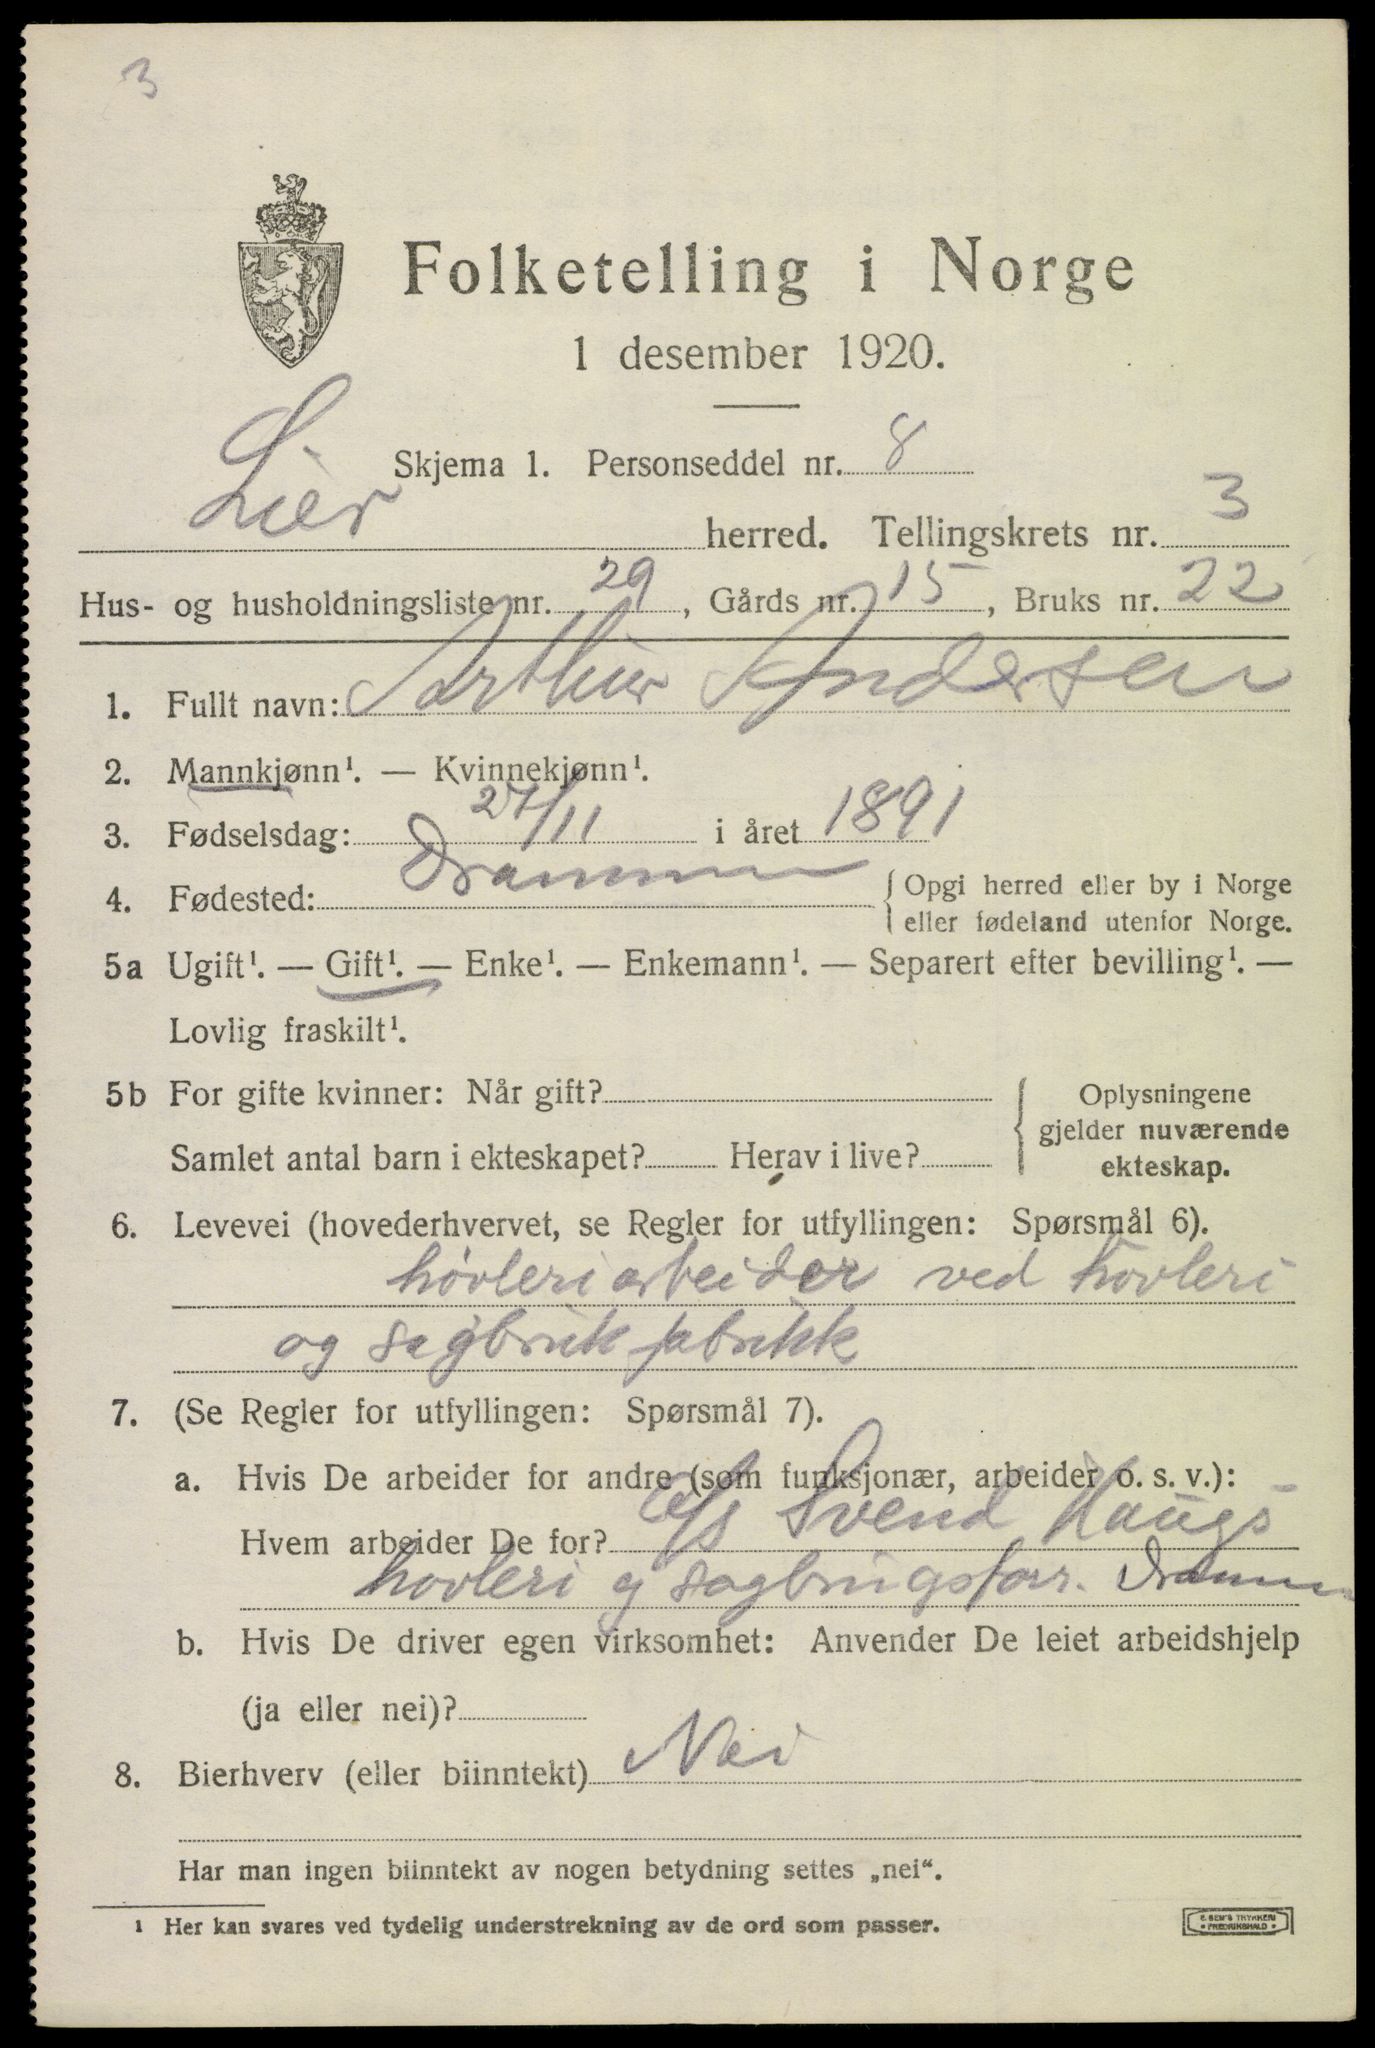 3
Folketelling i Norge
1 desember 1920.
Skjema 1. Personseddel nr. 8
Lier herred. Tellingskrets nr. 3
Hus- og husholdningsliste nr. 29, Gårds nr. 15, Bruks nr. 22
1. Fullt navn: Arthur Andersen
2. Mannkjønn¹. — Kvinnekjønn¹.
3. Fødselsdag: 27/11 i året 1891
4. Fødested: Drammen { Opgi herred eller by i Norge
eller fødeland utenfor Norge.
5a Ugift¹. — Gift¹. — Enke¹. — Enkemann¹. — Separert efter bevilling¹. —
Lovlig fraskilt¹.
5b For gifte kvinner: Når gift? { Oplysningene
gjelder nuværende
Samlet antal barn i ekteskapet? Herav i live?
ekteskap.
6. Levevei (hovederhvervet, se Regler for utfyllingen: Spørsmål 6).
høvleriarbeider ved hovleri
og sagbruk fabrikk
7. (Se Regler for utfyllingen: Spørsmål 7).
a. Hvis De arbeider for andre (som funksjonær, arbeider o. s. v.):
Hvem arbeider De for? A/s Svend Haugs
hovleri og sagbrugsforr. Drammen
b. Hvis De driver egen virksomhet: Anvender De leiet arbeidshjelp
(ja eller nei)?
8. Bierhverv (eller biinntekt) Nei
Har man ingen biinntekt av nogen betydning settes „nei“.
1 Her kan svares ved tydelig understrekning av de ord som passer.